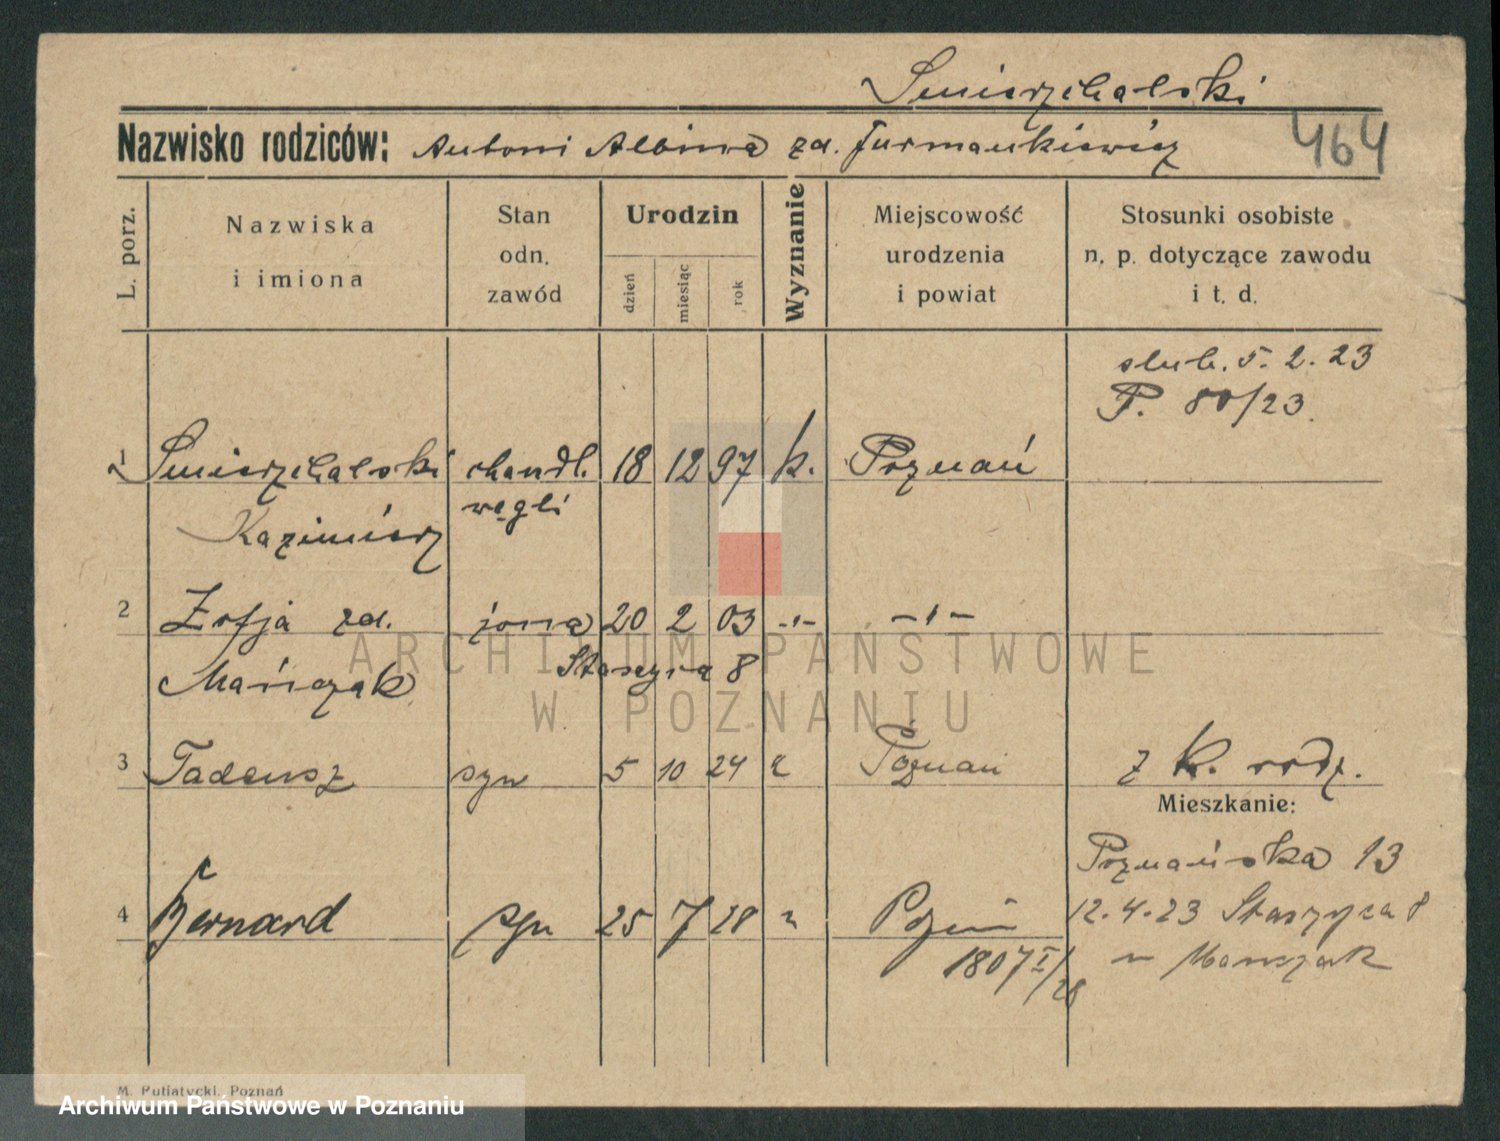 Smierzchalski
Nazwisko rodziców: Antoni Albina zd. Furmankiewicz
464
L. porz.
Nazwiska
i imiona
Stan
odn.
zawód
Urodzin
dzień
miesiąc
rok
Wyznanie
Miejscowość
urodzenia
i powiat
Stosunki osobiste
n. p. dotyczące zawodu
i t. d.
slub. 5. 2. 23
P. 80/23.
1 Smierzchalski chandl. 18 12 97 k. Poznań
Kazimierz węgli
2 Zofja zd. żona 20 2 03 -"- -"-
Mańczak Staszyca 8
3 Tadeusz syn 5 10 24 Poznań z k. rodz.
Mieszkanie:
Poznańska 13
4 Bernard syn 25 7 28 " Poznań 12.4.23 Staszyca 8
1807 I/28 Manczak
M. Putiatycki, Poznań
ARCHIWUM PAŃSTWOWE
W POZNANIU
Archiwum Państwowe w Poznaniu